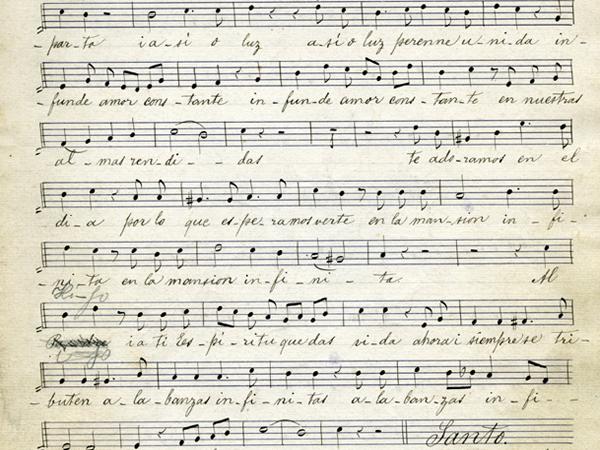 -par-ta i a-sí o luz a-sí o luz perenne u-ni-da in-
-funde amor cons-tante in-fun-de amor cons-tan-te en nuestras
al-mas ren-di--das te ado-ramos en el
di-a por lo que es-pe-ramos verte en la man-sion in-fi-
-ni-ta en la mansion in-fi-ni-ta. Al
Hi-jo
i a ti Es-pi-ritu que das vi-da ahora i siempre se tri-
-buten a-la-banzas in-fi-ni-tas a-la-ban-zas in-fi-
Santo.